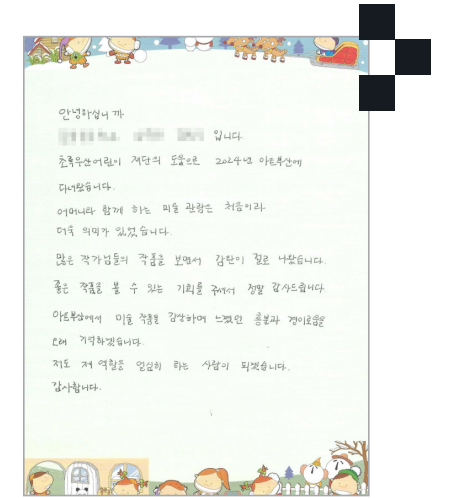 안녕하십니 까
입니다
초록우산어린이 재단의 도움으로 2024년 아트부산에
다녀왔습니다.
어머니와 함께 하는 미술 관람은 처음이라
더욱 의미가 있었습니다.
많은 작가님들의 작품을 보면서 감탄이 절로 나왔습니다.
좋은 작품을 볼 수 있는 기회를 주셔서 정말 감사드립니다.
아트부산에서 미술 작품을 감상하며 느꼈던 흥분과 경이로움을
오래 기억하겠습니다.
저도 제 역할을 열심히 하는 사람이 되겠습니다.
감사합니다.